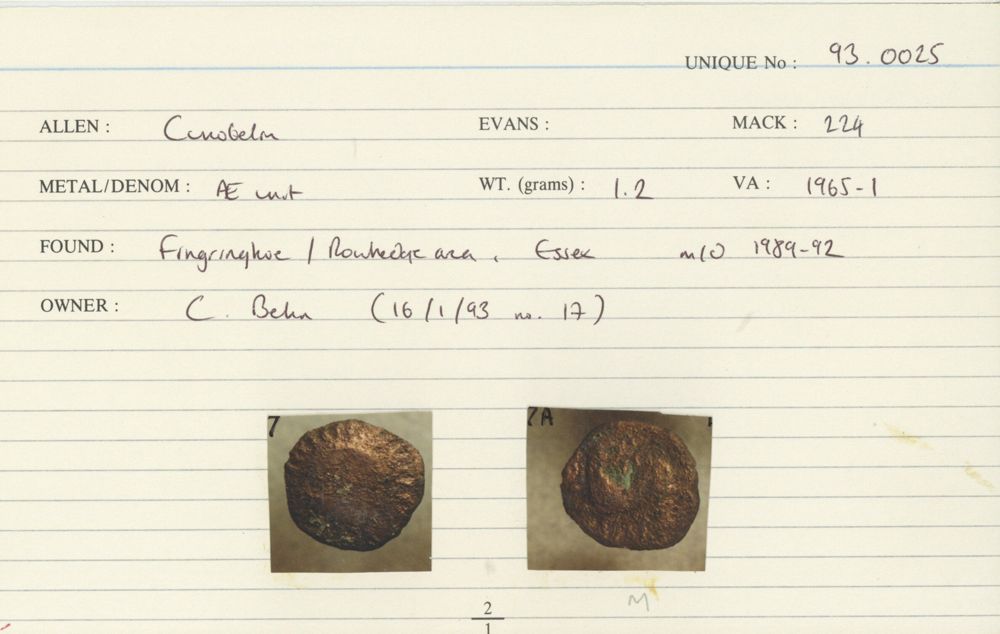 UNIQUE No : 93.0025
ALLEN : Cunobelin EVANS : MACK : 224
METAL/DENOM : Æ unit WT. (grams) : 1.2 VA : 1965-1
FOUND : Fingringhoe / Rowhedge area, Essex m/d 1989-92
OWNER : C. Behn (16/1/93 no. 17)
7 7A
M
2
1